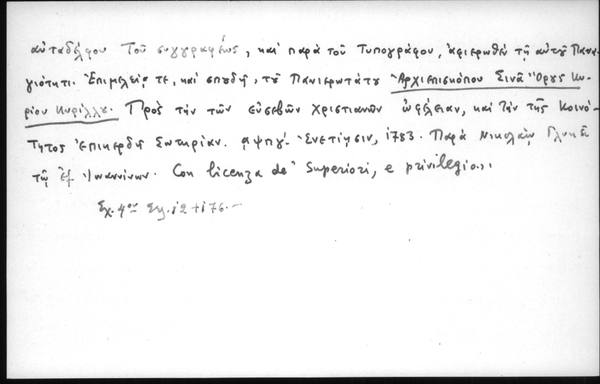 αὐταδέλφου τοῦ συγγραφέως, καὶ παρὰ τοῦ Τυπογράφου, ἀφιερωθὲν τῇ αὐτοῦ Πανα-
γιότητι. Ἐπιμελείᾳ τε, καὶ σπουδῇ, τοῦ Πανιερωτάτου Ἀρχιεπισκόπου Σινᾶ Ὄρους Κυ-
ρίου Κυρίλλου. Πρὸς τὴν τῶν εὐσεβῶν Χριστιανῶν ὠφέλειαν, καὶ τὴν τῆς Κοινό-
τητος ἐπικερδῆ Σωτηρίαν. αψπγʹ. Ἐνετίησιν, 1783. Παρὰ Νικολάῳ Γλυκεῖ
τῷ ἐξ Ἰωαννίνων. Con licenza de' Superiori, e privilegio.
Σχ. 4ον Σελ. 12 + 176.—